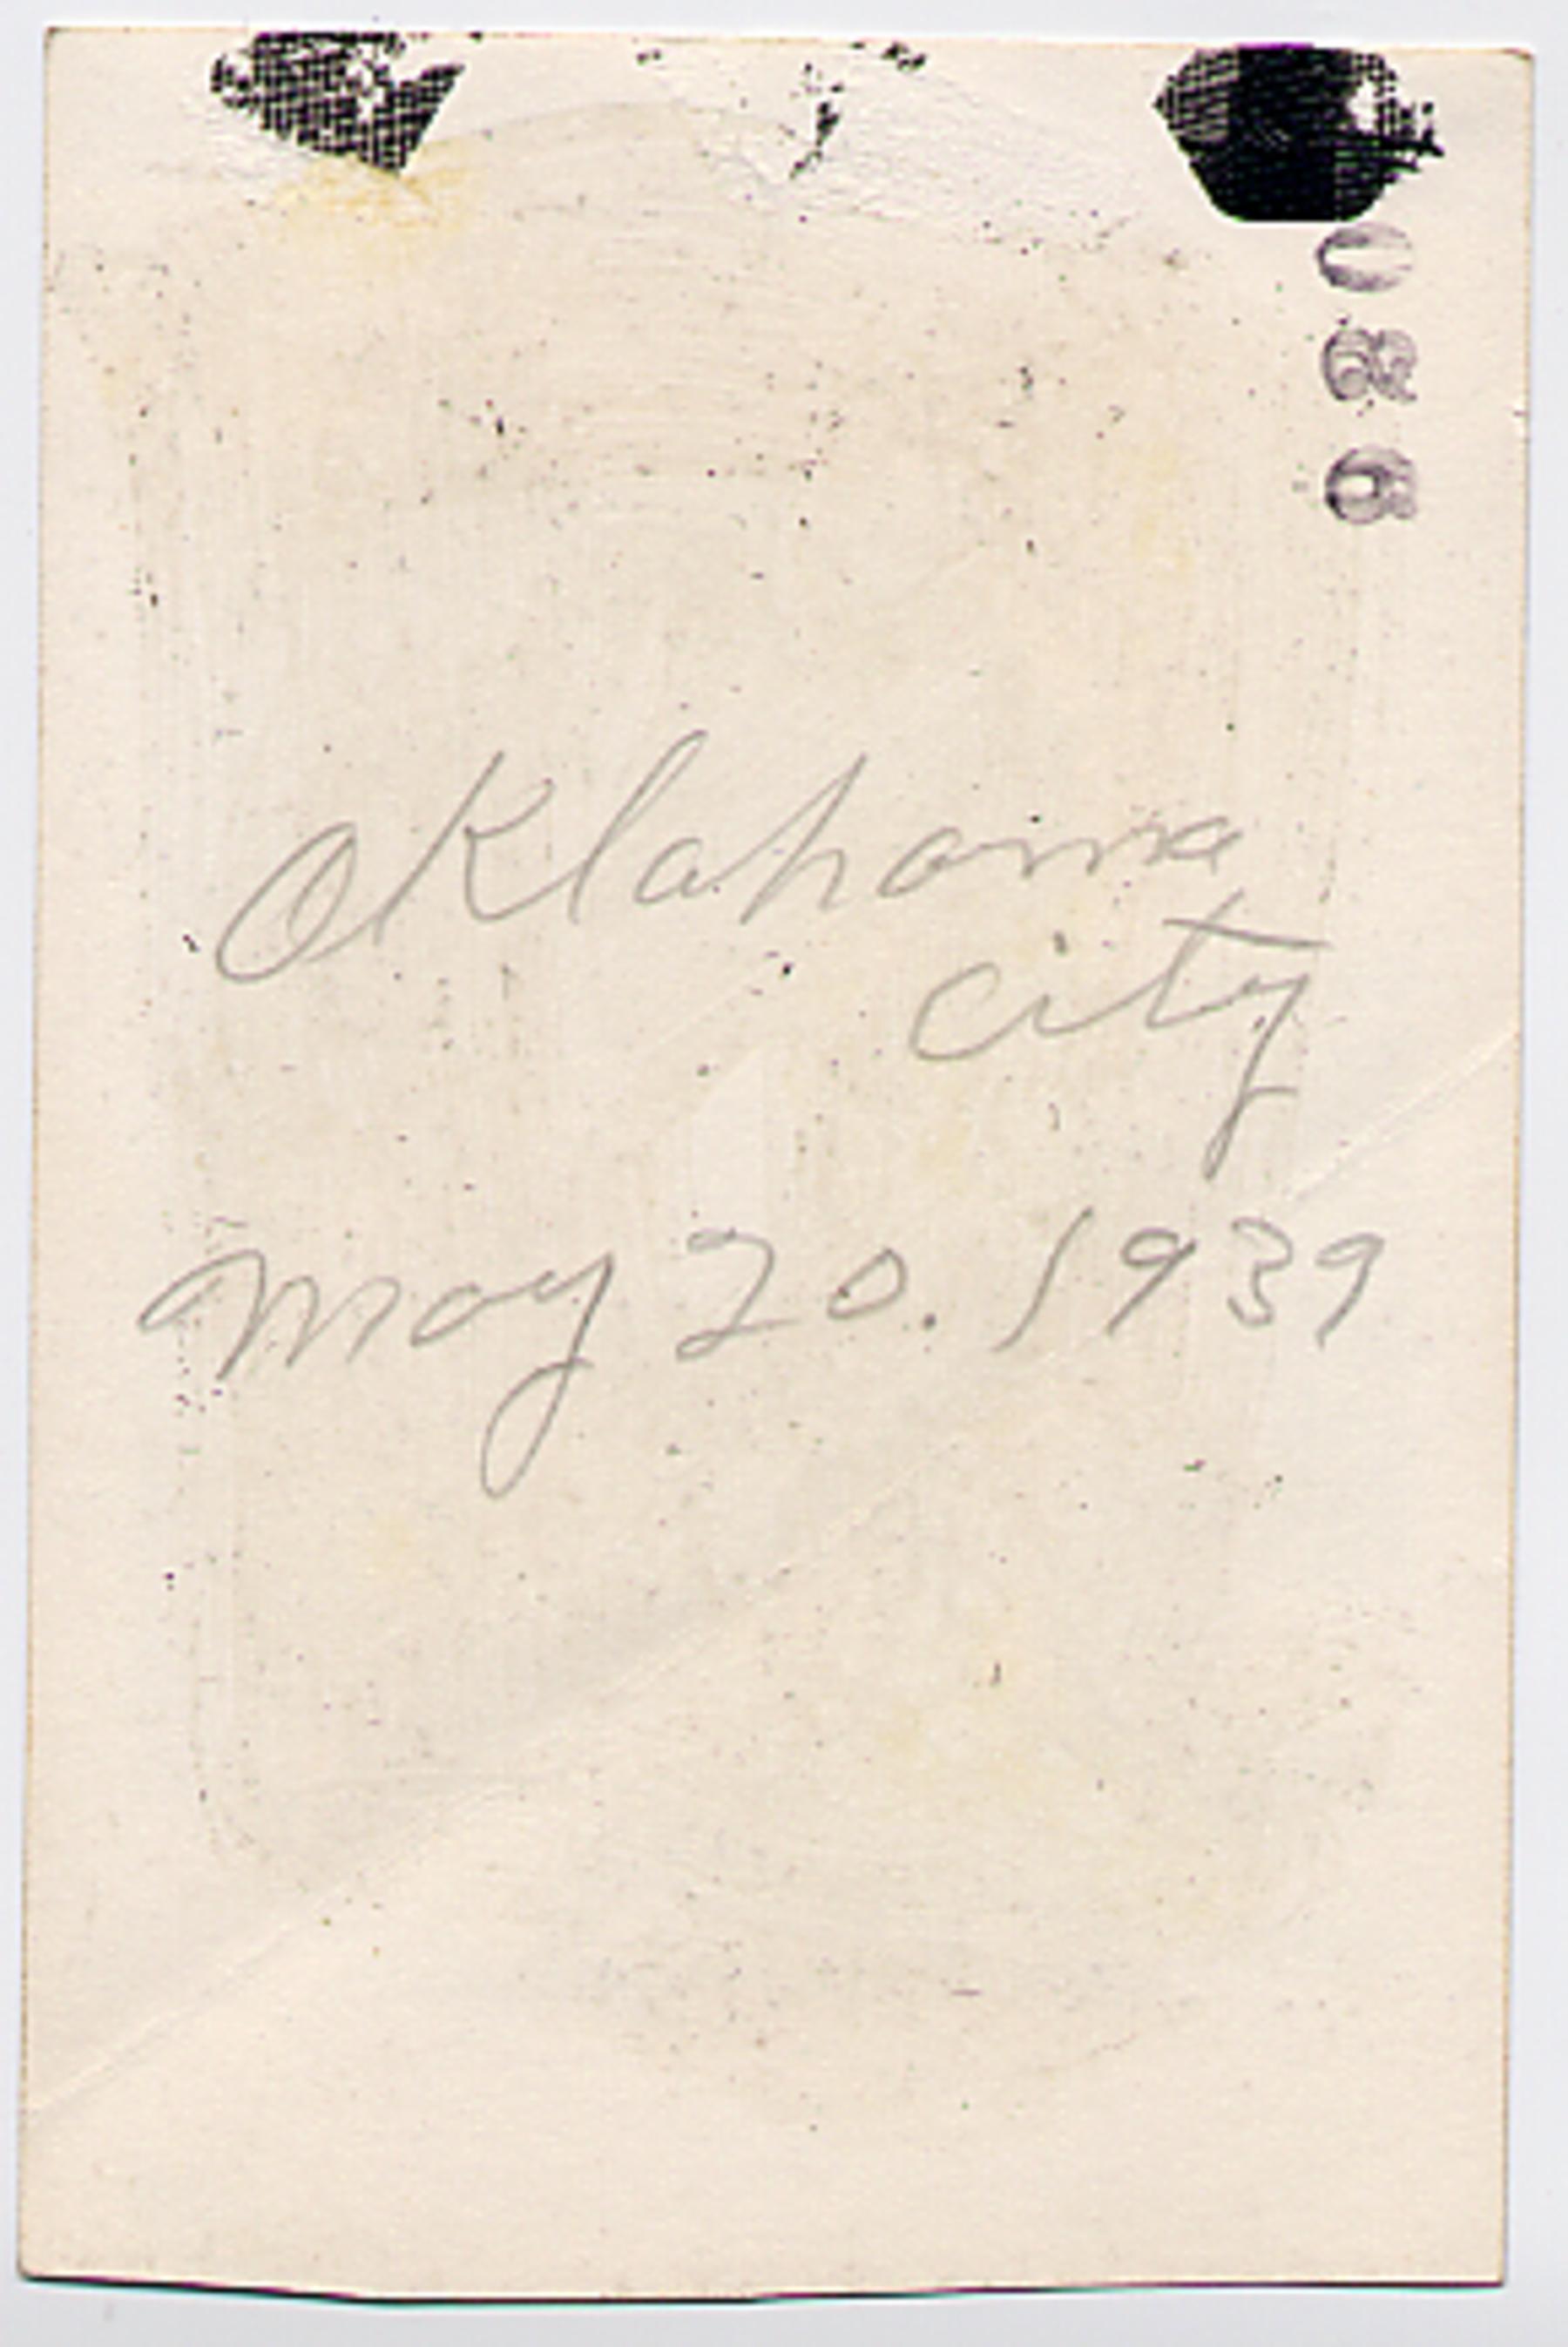 Oklahoma
City
May 20. 1939